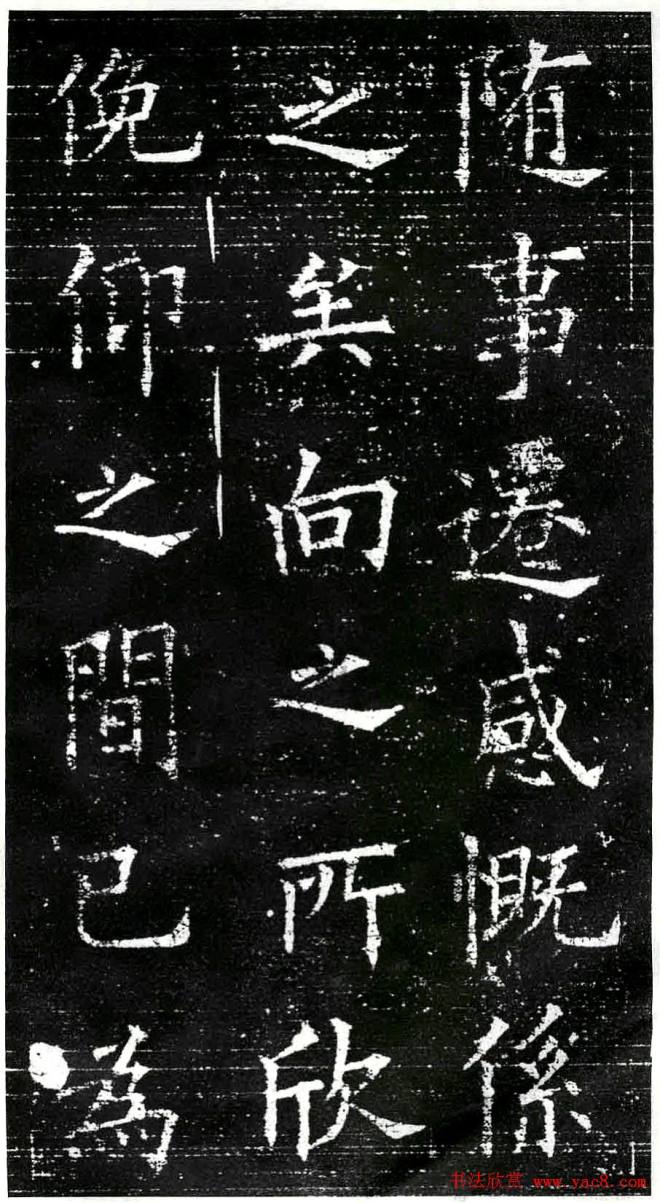 随事遷感慨係
之矣向之所欣
俛仰之間已為
书法欣赏 www.yac8.com